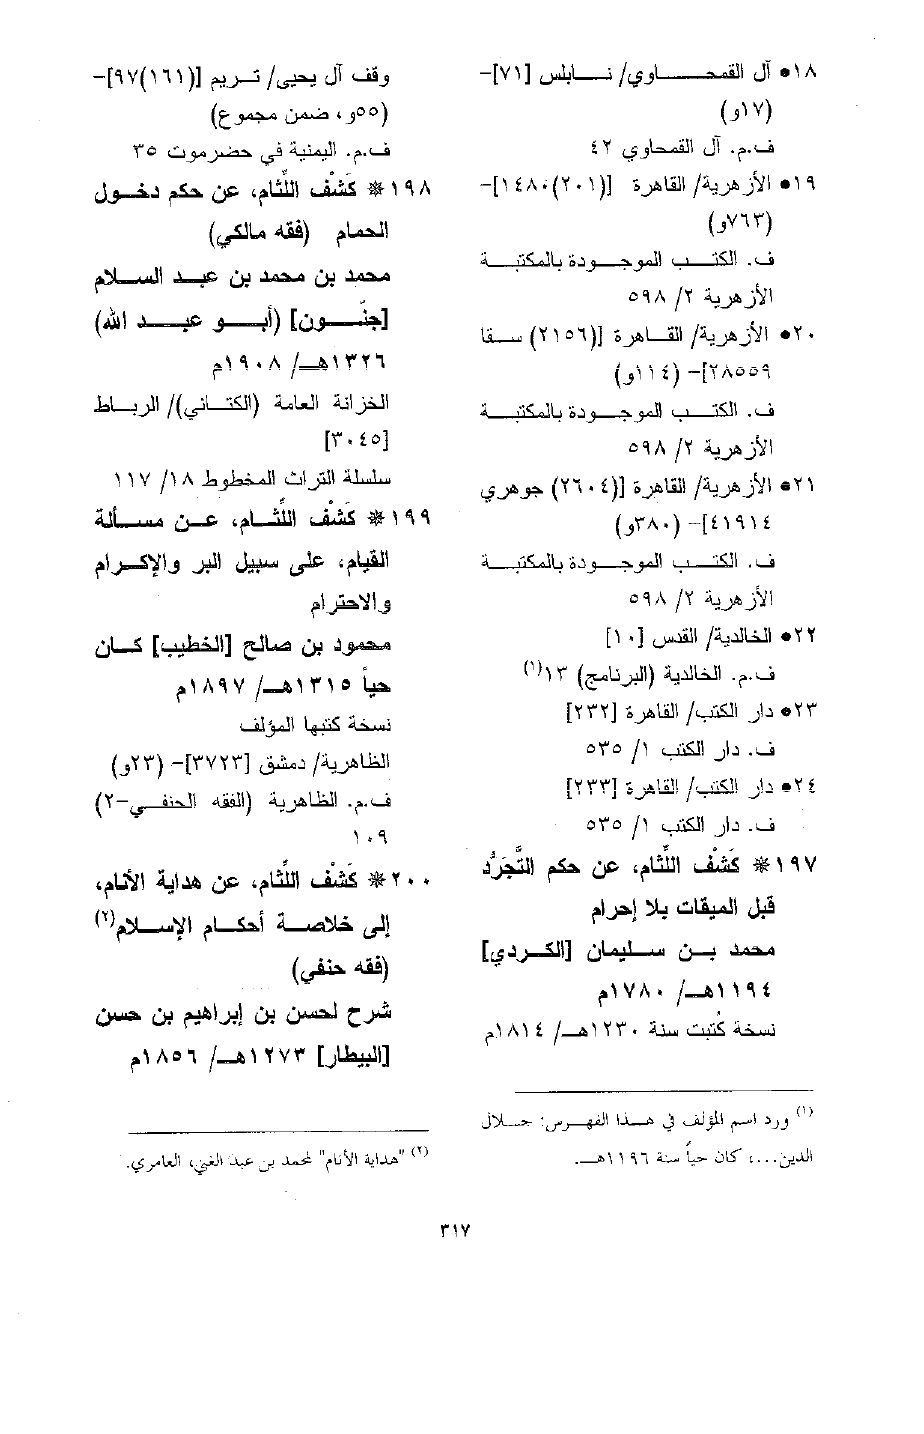 ١٨• آل القمحاوي/ نابلس [٧١]-
(١٧و)
ف.م. آل القمحاوي ٤٢
١٩• الأزهرية/ القاهرة [(٢٠١)١٤٨٠]-
(٧٦٣و)
ف. الكتب الموجودة بالمكتبة
الأزهرية ٢/ ٥٩٨
٢٠• الأزهرية/ القاهرة [(٢١٥٦) سقا
٢٨٥٥٩]- (١١٤و)
ف. الكتب الموجودة بالمكتبة
الأزهرية ٢/ ٥٩٨
٢١• الأزهرية/ القاهرة [(٢٦٠٤) جوهري
٤١٩١٤]- (٣٨٠و)
ف. الكتب الموجودة بالمكتبة
الأزهرية ٢/ ٥٩٨
٢٢• الخالدية/ القدس [١٠]
ف.م. الخالدية (البرنامج) ١٣(١)
٢٣• دار الكتب/ القاهرة [٢٣٢]
ف. دار الكتب ١/ ٥٣٥
٢٤• دار الكتب/ القاهرة [٢٣٣]
ف. دار الكتب ١/ ٥٣٥
١٩٧* كَشْف اللِّثام، عن حكم التَّجَرُّد
قبل الميقات بلا إحرام
محمد بن سليمان [الكردي]
١١٩٤هـ/ ١٧٨٠م
نسخة كُتبت سنة ١٢٣٠هـ/ ١٨١٤م
(١) ورد اسم المؤلف في هذا الفهرس: جلال
الدين...، كان حياً سنة ١١٩٦هـ.
وقف آل يحيى/ تريم [(١٦١)٩٧]-
(٥٥و، ضمن مجموع)
ف.م. اليمنية في حضرموت ٣٥
١٩٨* كَشْف اللِّثام، عن حكم دخول
الحمام (فقه مالكي)
محمد بن محمد بن عبد السلام
[جنّون] (أبو عبد الله)
١٣٢٦هـ/ ١٩٠٨م
الخزانة العامة (الكتاني)/ الرباط
[٣٠٤٥]
سلسلة التراث المخطوط ١٨/ ١١٧
١٩٩* كَشْف اللِّثام، عن مسألة
القيام، على سبيل البر والإكرام
والاحترام
محمود بن صالح [الخطيب] كان
حياً ١٣١٥هـ/ ١٨٩٧م
نسخة كتبها المؤلف
الظاهرية/ دمشق [٣٧٢٣]- (٢٣و)
ف.م. الظاهرية (الفقه الحنفي-٢)
١٠٩
٢٠٠* كَشْف اللِّثام، عن هداية الأنام،
إلى خلاصة أحكام الإسلام(٢)
(فقه حنفي)
شرح لحسن بن إبراهيم بن حسن
[البيطار] ١٢٧٣هـ/ ١٨٥٦م
(٢) "هداية الأنام" لمحمد بن عبد الغني، العامري.
٣١٧